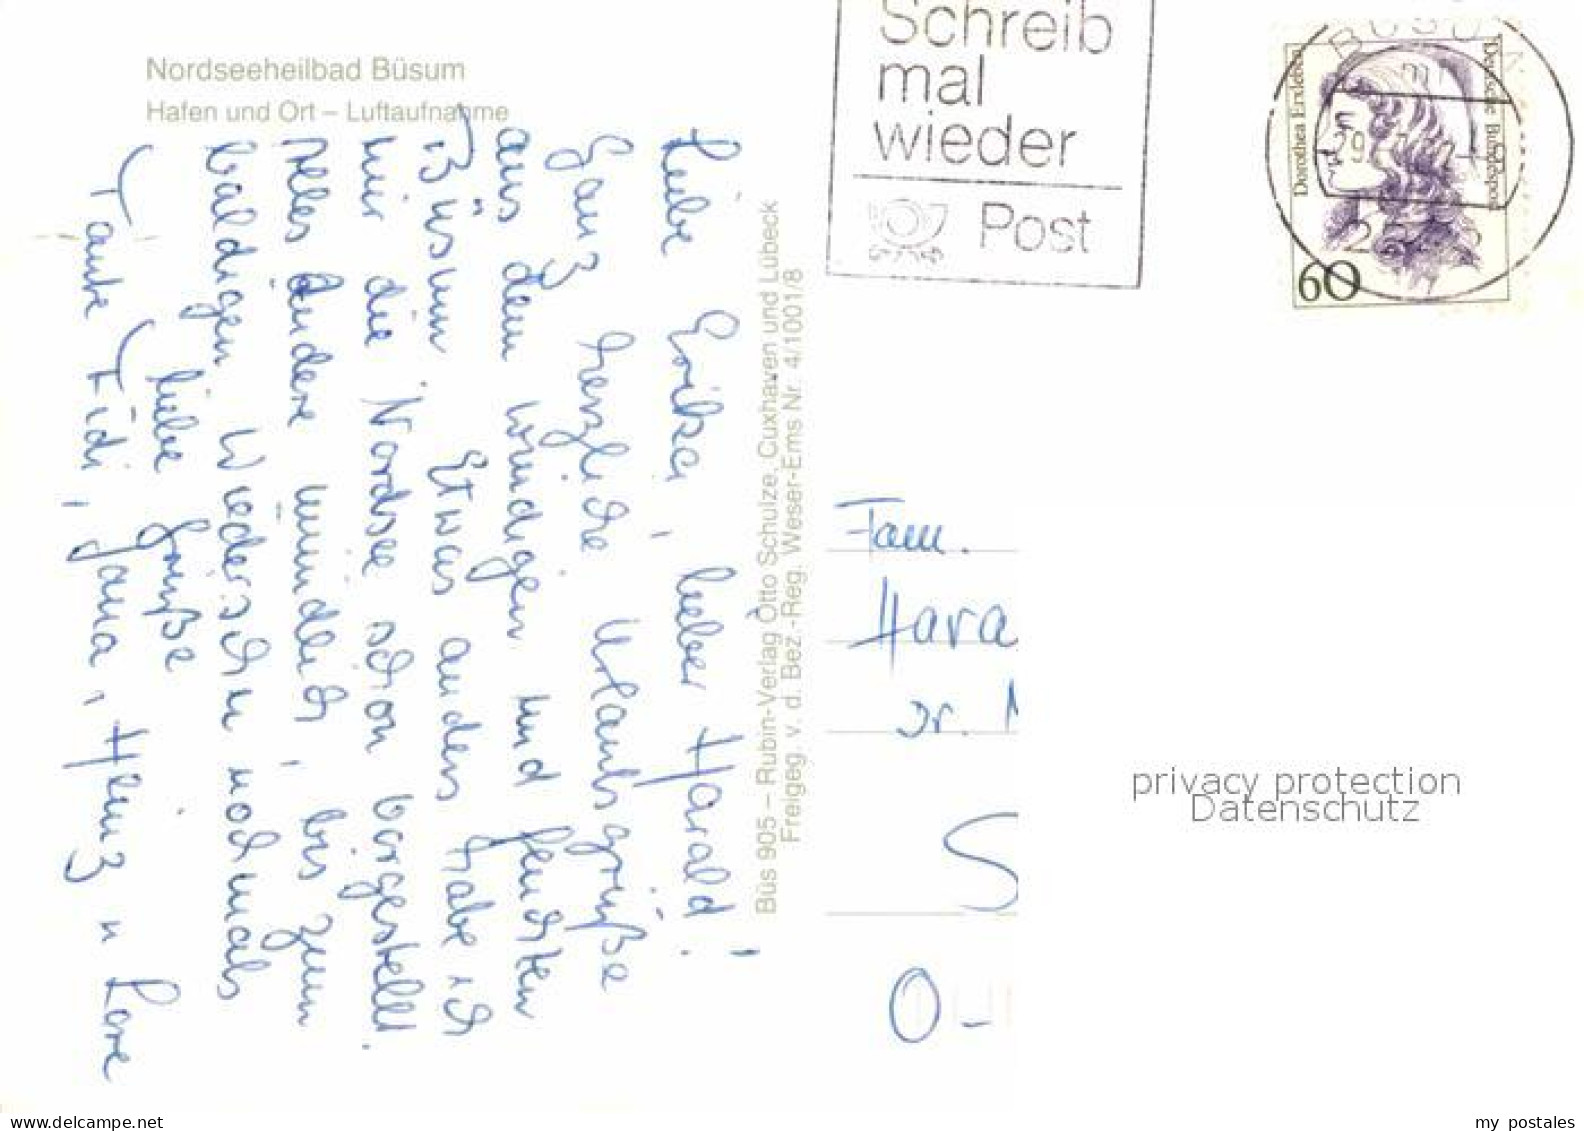 Nordseeheilbad Büsum
Hafen und Ort – Luftaufnahme
Liebe Erika, lieber Harald!
Ganz herzliche Urlaubsgrüße
aus dem windigen und feuchten
Büsum. Etwas anders habe ich
mir die Nordsee schon vorgestellt.
Alles andere mündlich, bis zum
baldigen Wiedersehn nochmals
liebe Grüße
Tante Fidi, Jana, Heinz u Lore
Büs 905 – Rubin-Verlag Otto Schulze, Cuxhaven und Lübeck
Freigeg. v. d. Bez.-Reg. Weser-Ems Nr. 4/1001/8
Schreib
mal
wieder
Post
BÜSUM
Dorothea Erxleben
Deutsche Bundespost
60
Fam.
Hara
Dr.
S
O-
privacy protection
Datenschutz
www.delcampe.net
my postales